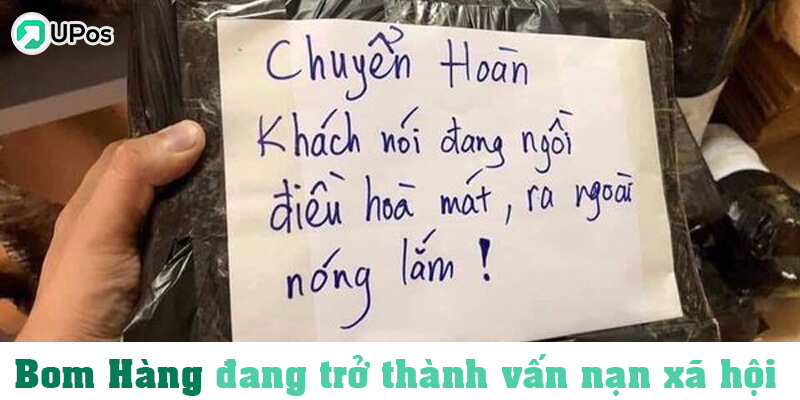 UPos
Chuyển Hoàn
Khách nói đang ngồi
điều hoà mát, ra ngoài
nóng lắm !
Bom Hàng đang trở thành vấn nạn xã hội